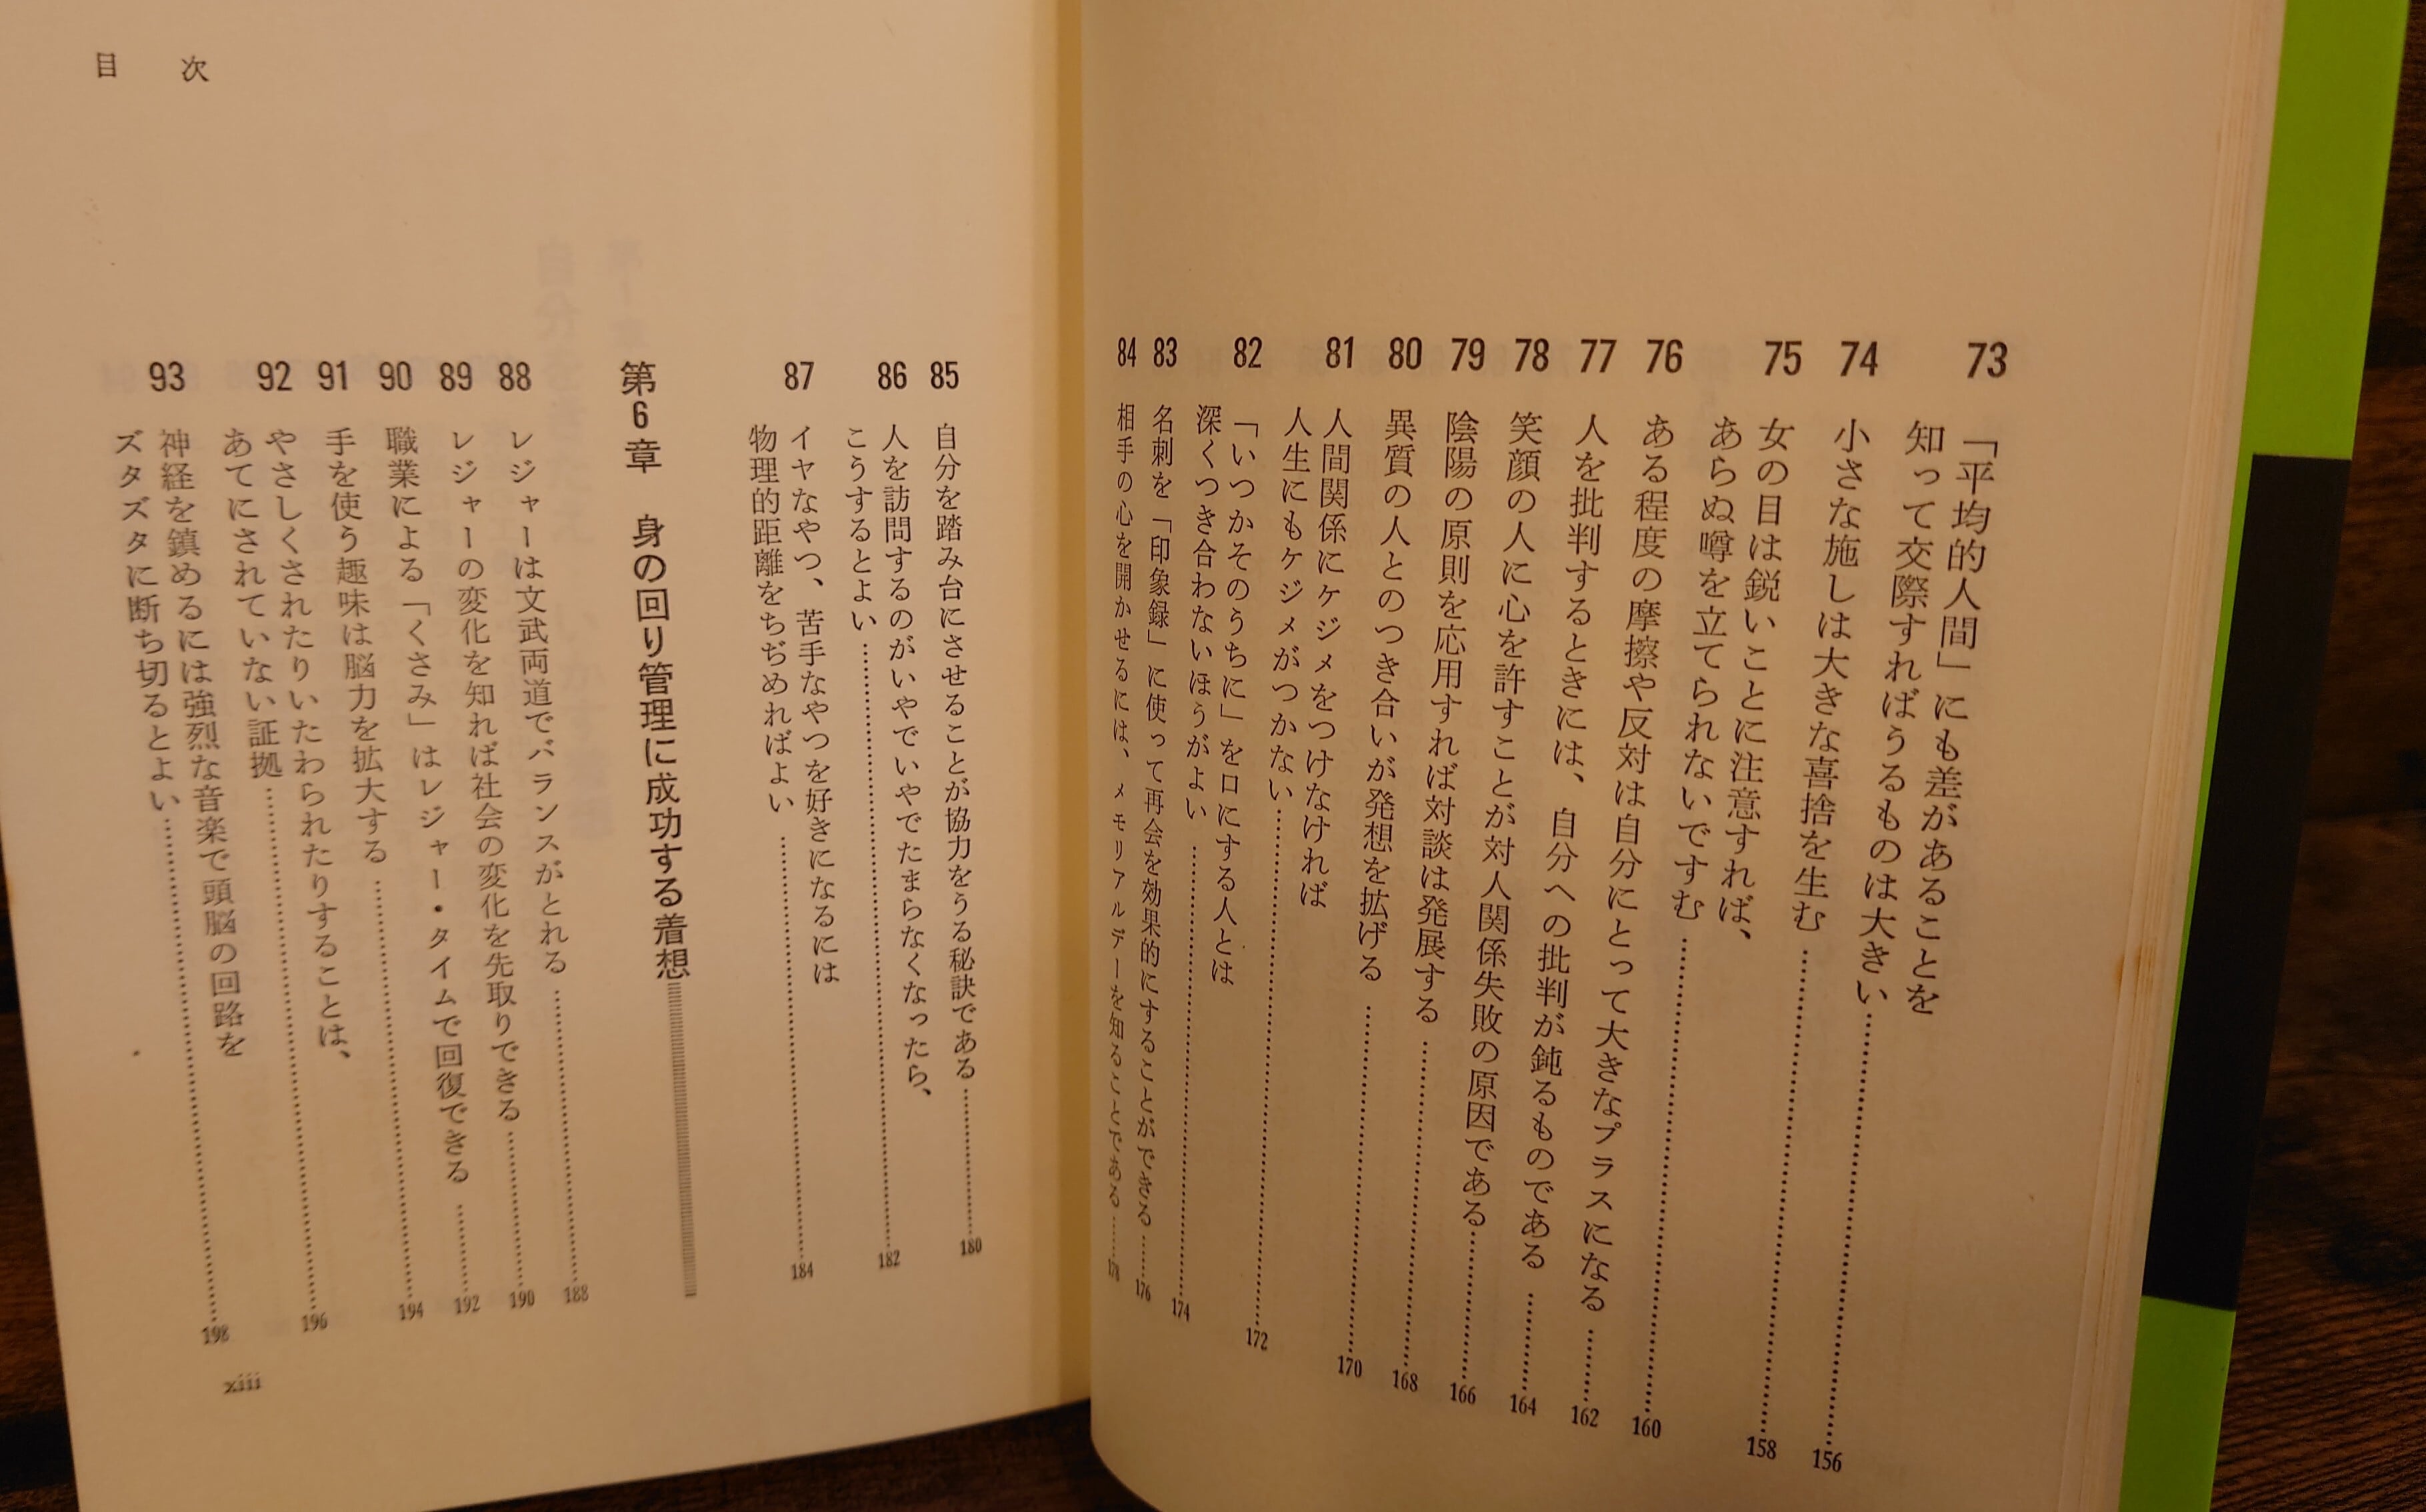 73 「平均的人間」にも差があることを
知って交際すればうるものは大きい……156
74 小さな施しは大きな喜捨を生む……158
75 女の目は鋭いことに注意すれば、
あらぬ噂を立てられないですむ……160
76 ある程度の摩擦や反対は自分にとって大きなプラスになる……162
77 人を批判するときには、自分への批判が鈍るものである……164
78 笑顔の人に心を許すことが対人関係失敗の原因である……166
79 陰陽の原則を応用すれば対談は発展する……168
80 異質の人とのつき合いが発想を拡げる……170
81 人間関係にケジメをつけなければ
人生にもケジメがつかない……172
82 「いつかそのうちに」を口にする人とは
深くつき合わないほうがよい……174
83 名刺を「印象録」に使って再会を効果的にすることができる……176
84 相手の心を開かせるには、メモリアルデーを知ることである……178
目次
85 自分を踏み台にさせることが協力をうる秘訣である……180
86 人を訪問するのがいやでいやでたまらなくなったら、
こうするとよい……182
87 イヤなやつ、苦手なやつを好きになるには
物理的距離をちぢめればよい……184
第6章 身の回り管理に成功する着想
88 レジャーは文武両道でバランスがとれる……188
89 レジャーの変化を知れば社会の変化を先取りできる……190
90 職業による「くさみ」はレジャー・タイムで回復できる……192
91 手を使う趣味は脳力を拡大する……194
92 やさしくされたりいたわられたりすることは、
あてにされていない証拠……196
93 神経を鎮めるには強烈な音楽で頭脳の回路を
ズタズタに断ち切るとよい……198
xiii